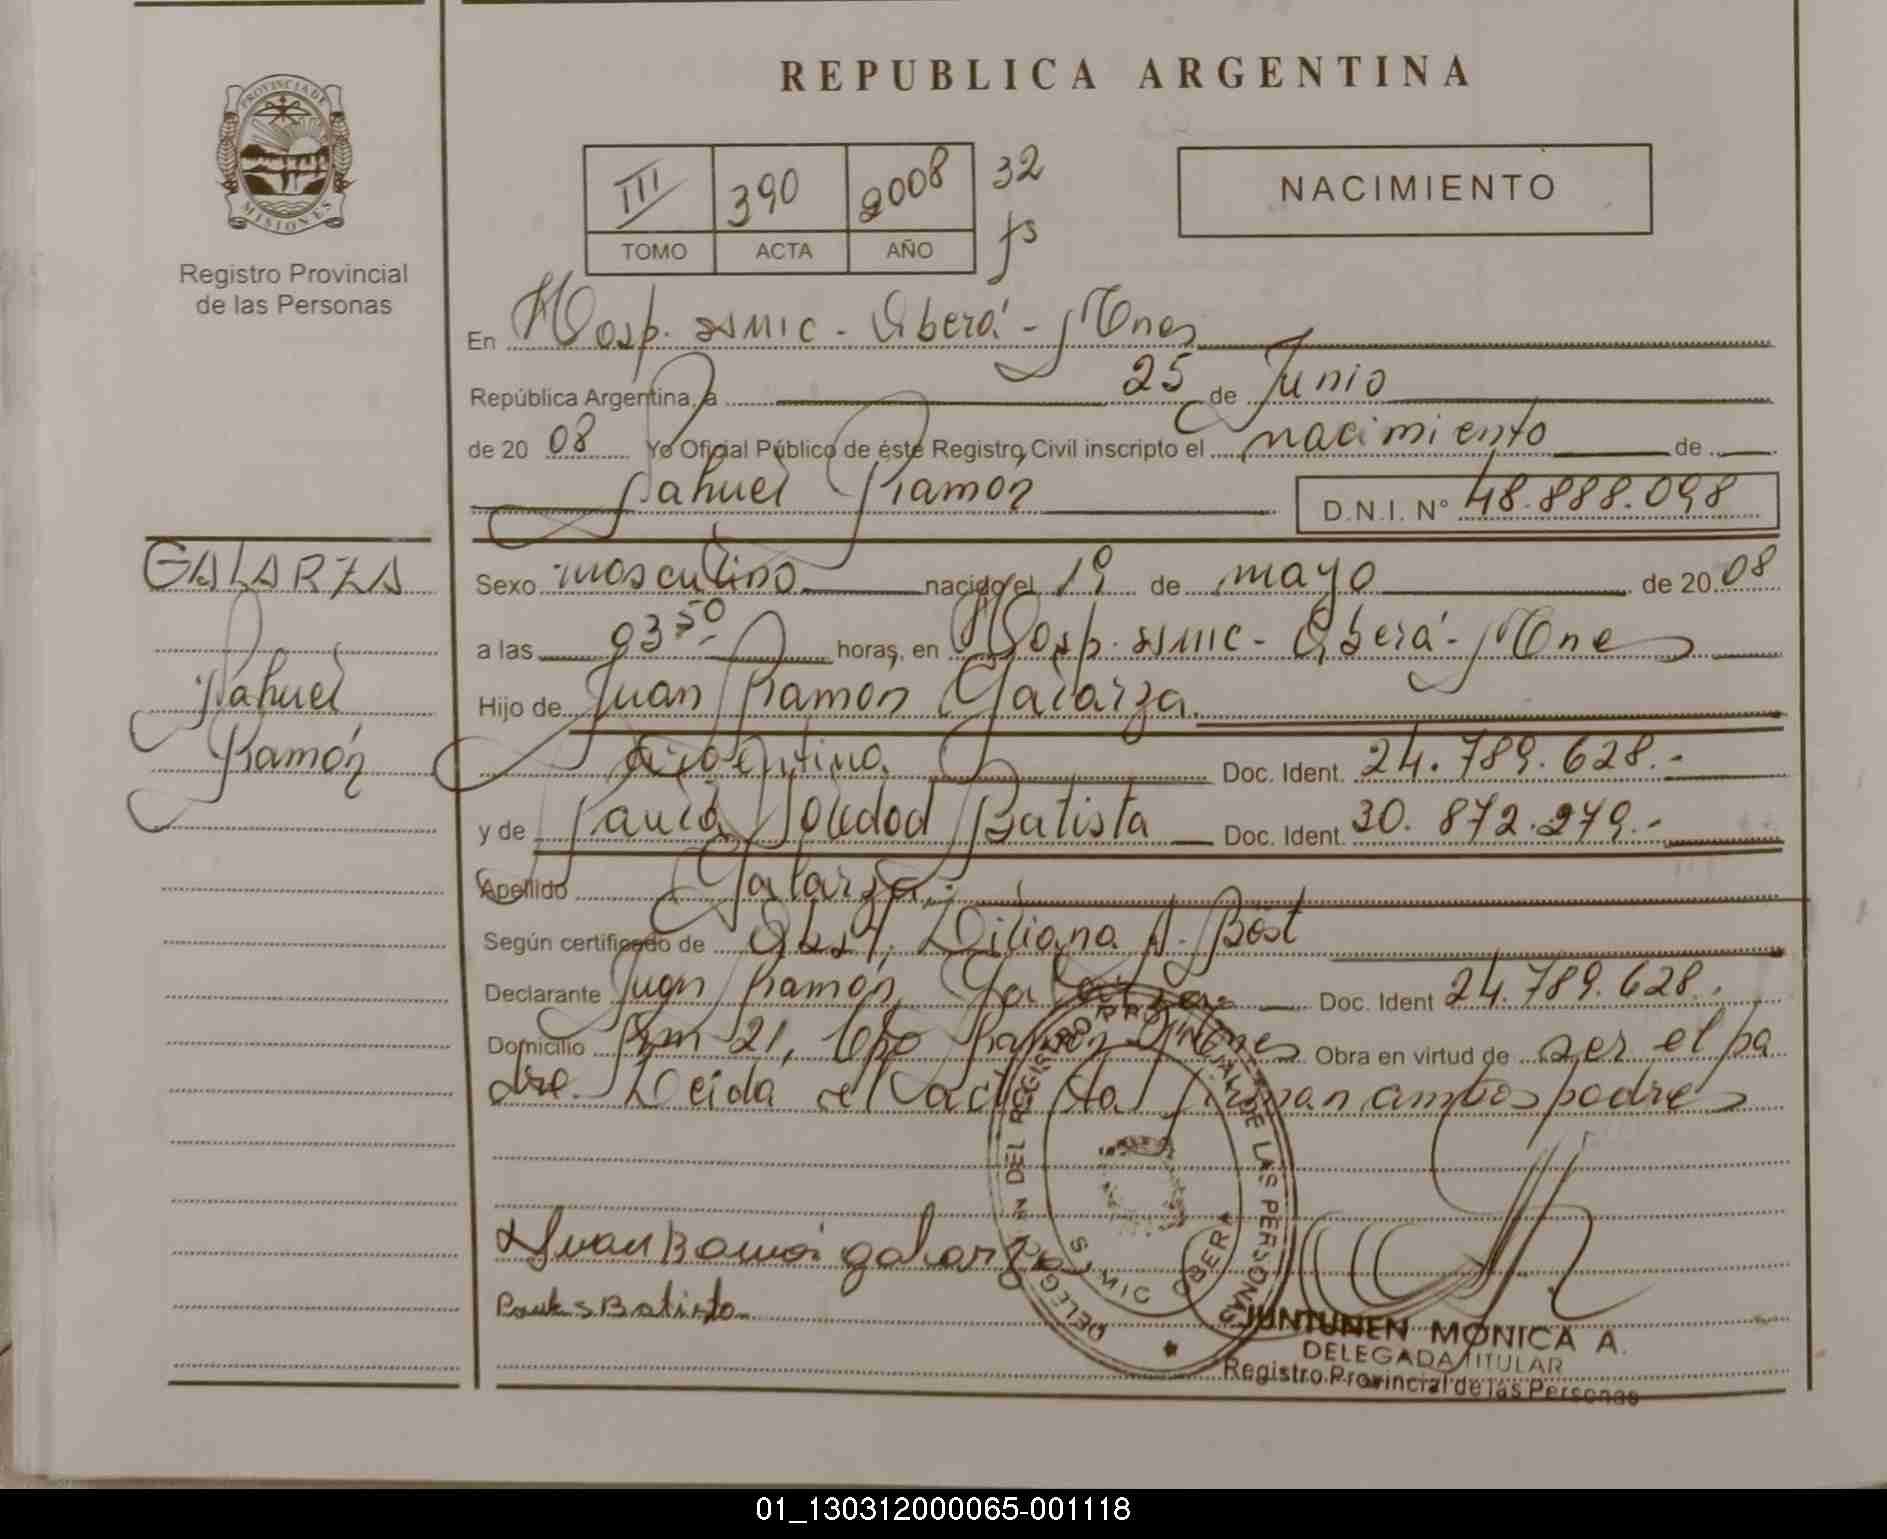 REPUBLICA ARGENTINA
PROVINCIA DE
MISIONES
Registro Provincial
de las Personas
III 390 2008 32
TOMO ACTA AÑO fs
NACIMIENTO
En Hosp. SAMIC - Oberá - Mnes
República Argentina, a 25 de Junio
de 20 08 Yo Oficial Público de éste Registro Civil inscripto el nacimiento de
Nahuel Ramón D.N.I. N° 48.888.098
GALARZA
Nahuel
Ramón
Sexo masculino nacido el 19 de mayo de 20 08
a las 03 50 horas, en Hosp. SAMIC - Oberá - Mnes
Hijo de Juan Ramón Galarza
argentino Doc. Ident. 24.789.628.-
y de Paula Soledad Batista Doc. Ident. 30.872.279.-
Apellido Galarza
Según certificado de Obst. Liliana A. Bost
Declarante Juan Ramón Galarza Doc. Ident 24.789.628.
Domicilio Km 21, Cpo Ramón Mnes Obra en virtud de ser el pa
dre. Leída el acta firman ambos padres
Juan Ramón galarza
Paula S Batista
DELEGACION DEL REGISTRO PROVINCIAL DE LAS PERSONAS
SAMIC OBERA
JUNTUNEN MONICA A.
DELEGADA TITULAR
Registro Provincial de las Personas
01_130312000065-001118